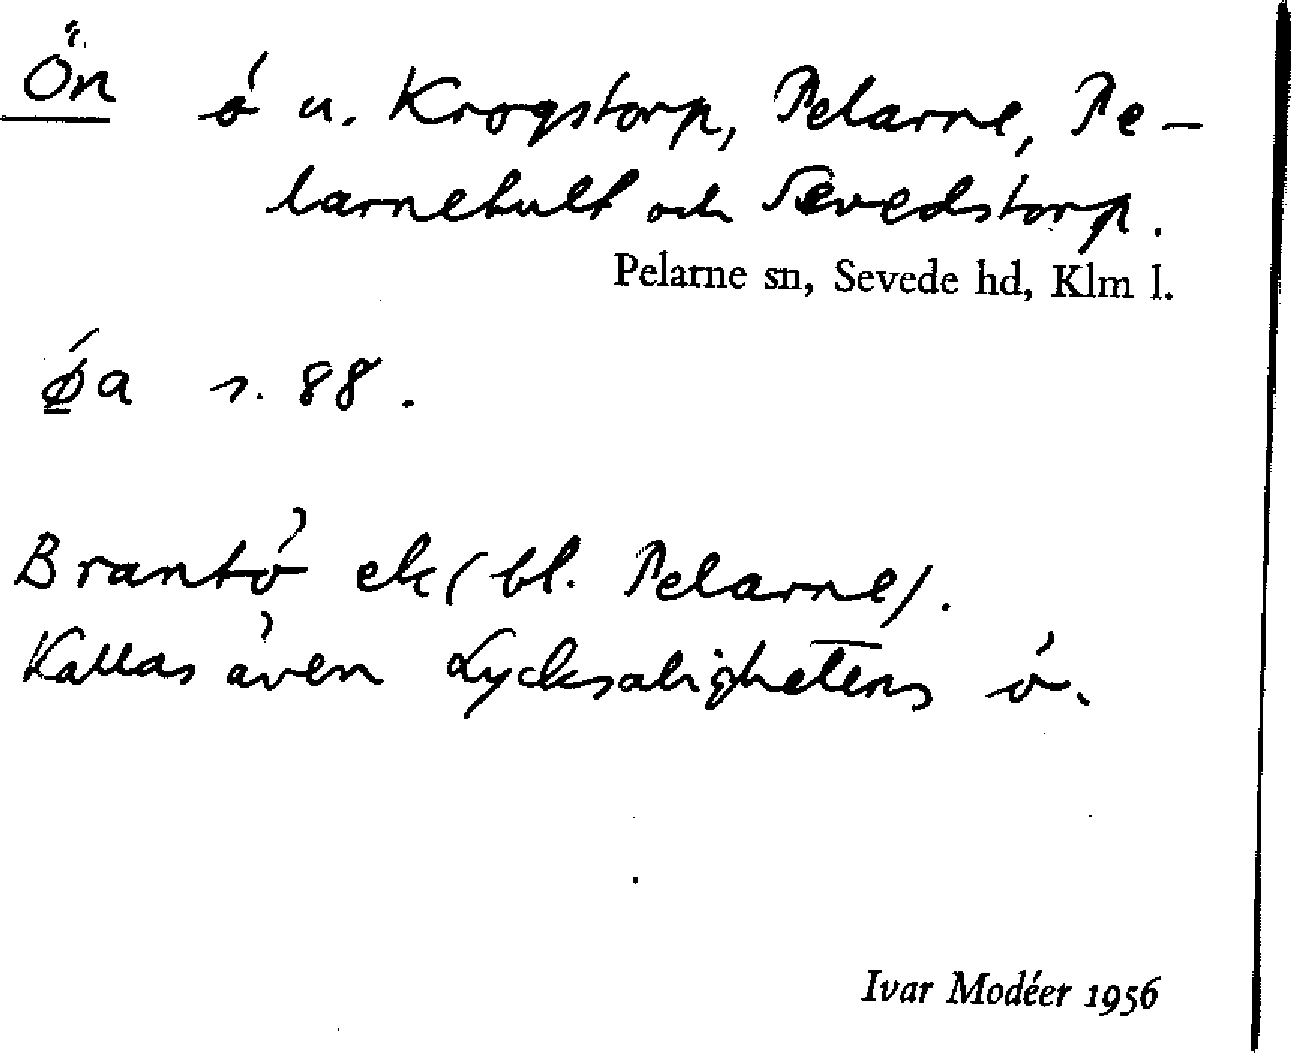 Ön ö u. Krogstorp, Pelarne, Pe-
larnehult och Sevedstorp.
Pelarne sn, Sevede hd, Klm l.
s. 88.
Brantö ek (bl. Pelarne).
Kallas även Lycksalighetens ö.
Ivar Modéer 1956